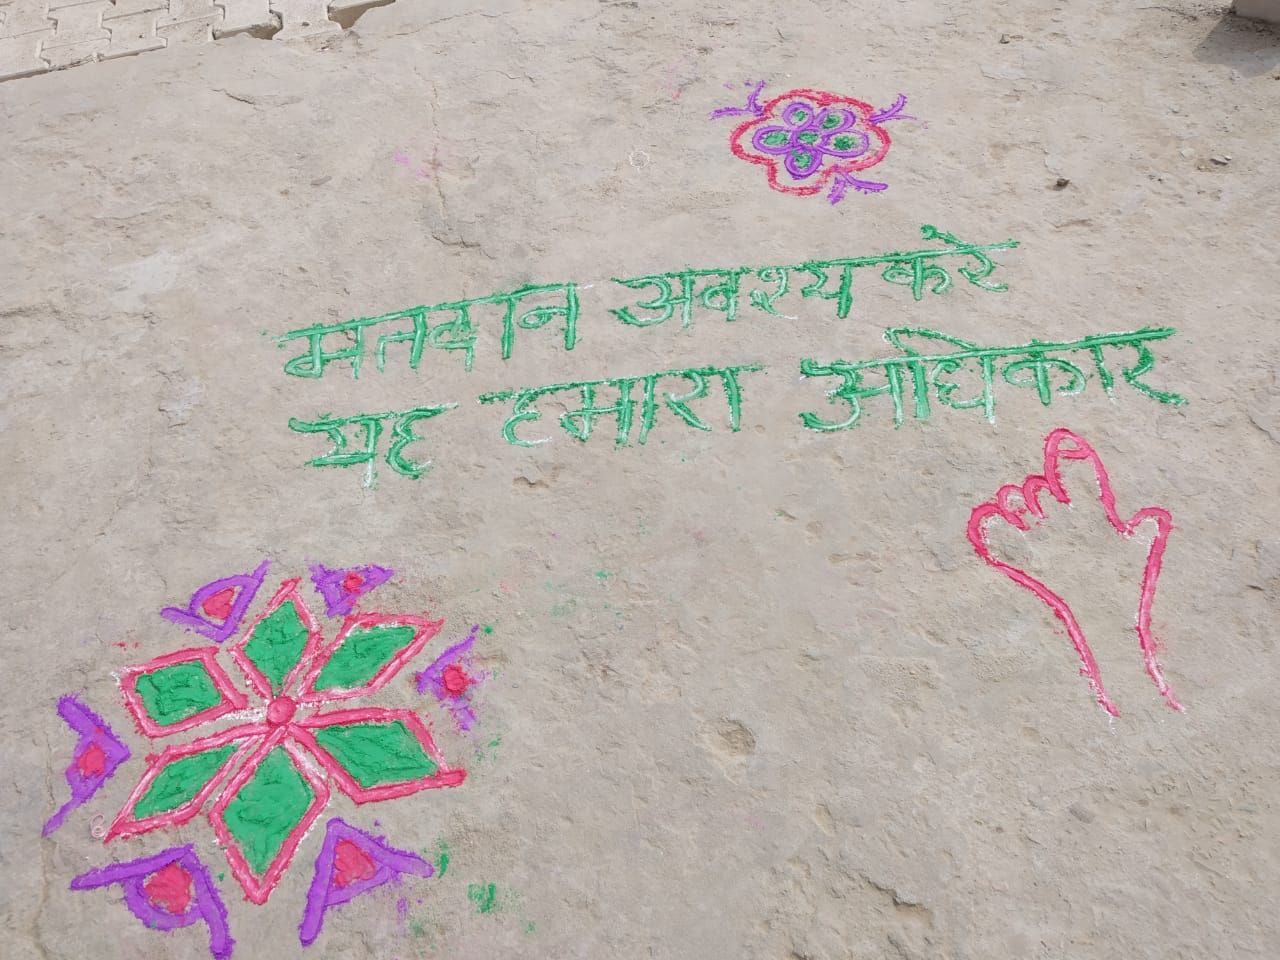 मतदान अवश्य करे
यह हमारा अधिकार